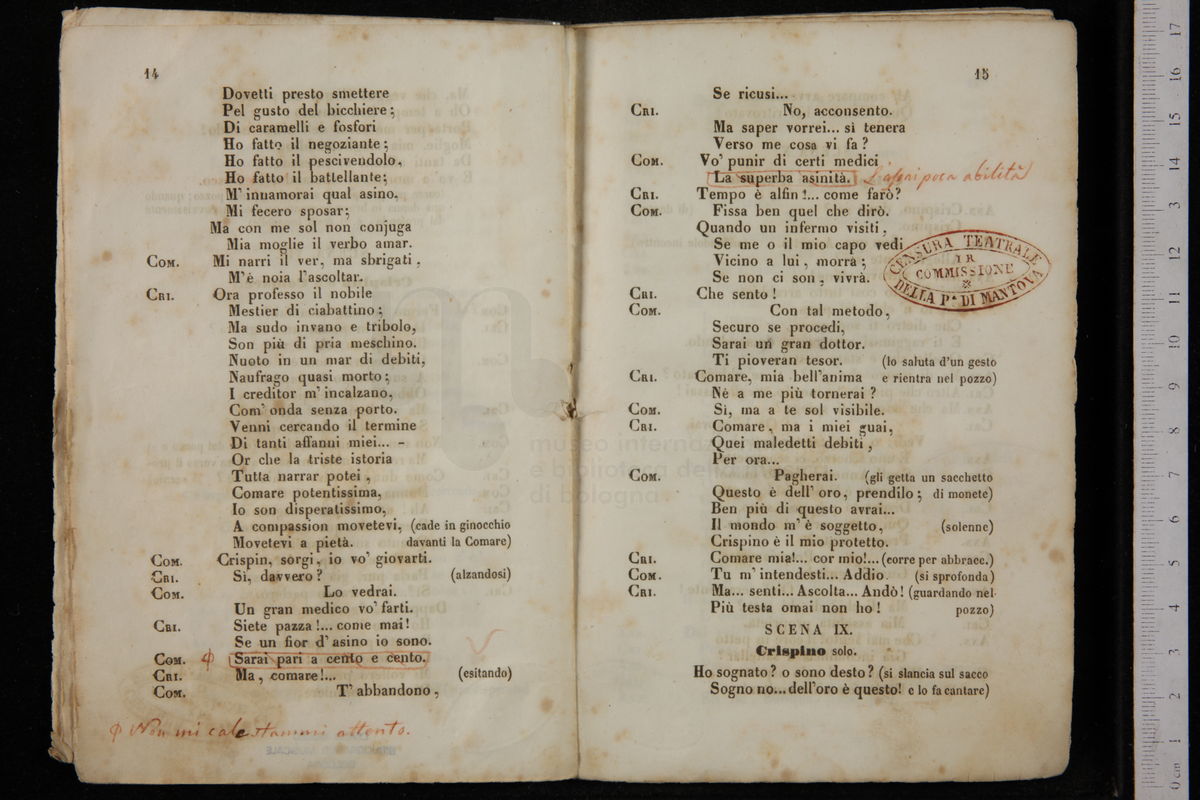 14
Dovetti presto smettere
Pel gusto del bicchiere;
Di caramelli e fosfori
Ho fatto il negoziante;
Ho fatto il pescivendolo,
Ho fatto il battellante;
M' innamorai qual asino,
Mi fecero sposar;
Ma con me sol non conjuga
Mia moglie il verbo amar.
COM. Mi narri il ver, ma sbrigati,
M'è noia l'ascoltar.
CRI. Ora professo il nobile
Mestier di ciabattino;
Ma sudo invano e tribolo,
Son più di pria meschino.
Nuoto in un mar di debiti,
Naufrago quasi morto;
I creditor m' incalzano,
Com' onda senza porto.
Venni cercando il termine
Di tanti affanni miei... -
Or che la triste istoria
Tutta narrar potei,
Comare potentissima,
Io son disperatissimo,
A compassion movetevi, (cade in ginocchio
Movetevi a pietà. davanti la Comare)
COM. Crispin, sorgi, io vo' giovarti.
CRI. Sì, davvero? (alzandosi)
COM. Lo vedrai.
Un gran medico vo' farti.
CRI. Siete pazza!... come mai!
Se un fior d' asino io sono.
COM. Sarai pari a cento e cento.
CRI. Ma, comare!... (esitando)
COM. T' abbandono,
Non mi cale stammi attento.
15
Se ricusi...
CRI. No, acconsento.
Ma saper vorrei... si tenera
Verso me cosa vi fa?
COM. Vo' punir di certi medici
La superba asinità. L'assai poca abilità
CRI. Tempo è alfin!... come farò?
COM. Fissa ben quel che dirò.
Quando un infermo visiti,
Se me o il mio capo vedi
Vicino a lui, morrà;
Se non ci son, vivrà.
CENSURA TEATRALE
I R
COMMISSIONE
DELLA P.a DI MANTOVA
CRI. Che sento!
COM. Con tal metodo,
Securo se procedi,
Sarai un gran dottor.
Ti pioveran tesor. (lo saluta d'un gesto
CRI. Comare, mia bell'anima e rientra nel pozzo)
Nè a me più tornerai?
COM. Sì, ma a te sol visibile.
CRI. Comare, ma i miei guai,
Quei maledetti debiti,
Per ora...
COM. Pagherai. (gli getta un sacchetto
Questo è dell' oro, prendilo; di monete)
Ben più di questo avrai...
Il mondo m' è soggetto, (solenne)
Crispino è il mio protetto.
CRI. Comare mia!... cor mio!... (corre per abbracc.)
COM. Tu m' intendesti... Addio. (si sprofonda)
CRI. Ma... senti... Ascolta... Andò! (guardando nel
Più testa omai non ho! pozzo)
SCENA IX.
Crispino solo.
Ho sognato? o sono desto? (si slancia sul sacco
Sogno no... dell'oro è questo! e lo fa cantare)
museo internaz
e biblioteca della
di bologna
0 cm 1 2 3 4 5 6 7 8 9 10 11 12 13 14 15 16 17